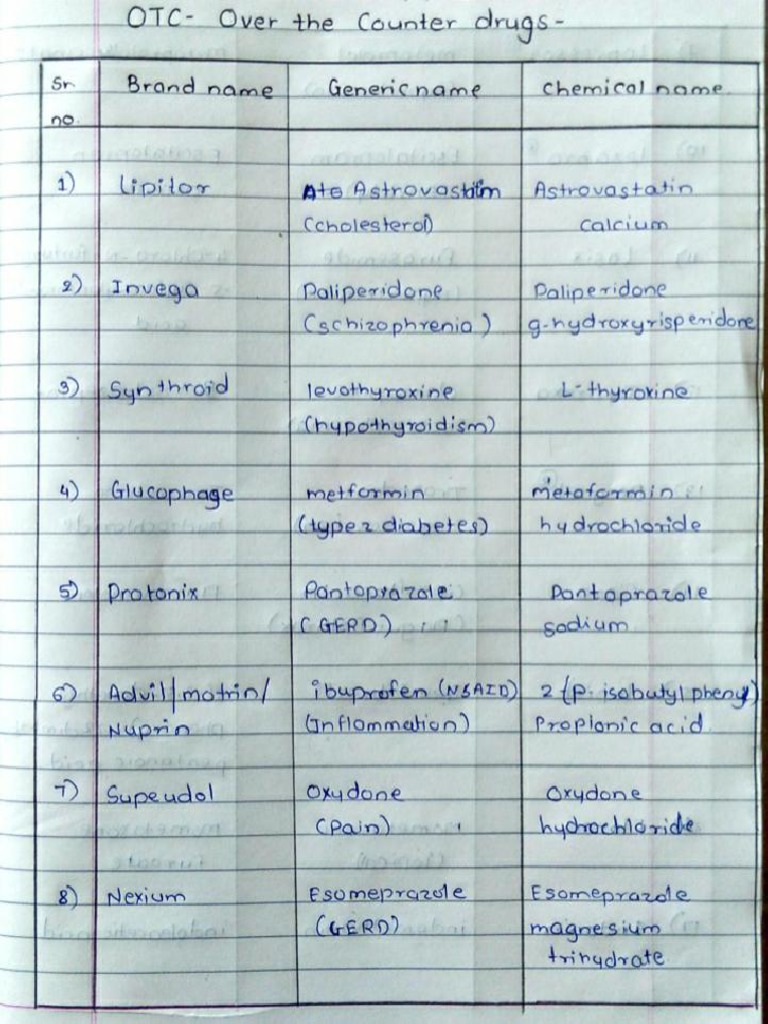 OTC- Over the Counter drugs-
Sr no. Brand name Generic name Chemical name.
1) Lipitor Astrovastatin Astrovastatin
(cholesterol) calcium
2) Invega Paliperidone Paliperidone
(schizophrenia) g-hydroxyrisperidone
3) Synthroid levothyroxine L-thyroxine
(hypothyroidism)
4) Glucophage metformin metaformin
(type 2 diabetes) hydrochloride
5) Protonix Pantoprazole Pantoprazole
(GERD) sodium
6) Advil/motrin/ ibuprofen (NSAID) 2 (p. isobutyl phenyl)
Nuprin (Inflammation) Propionic acid
7) Supeudol Oxydone Oxydone
(Pain) hydrochloride
8) Nexium Esomeprazole Esomeprazole
(GERD) magnesium
trihydrate